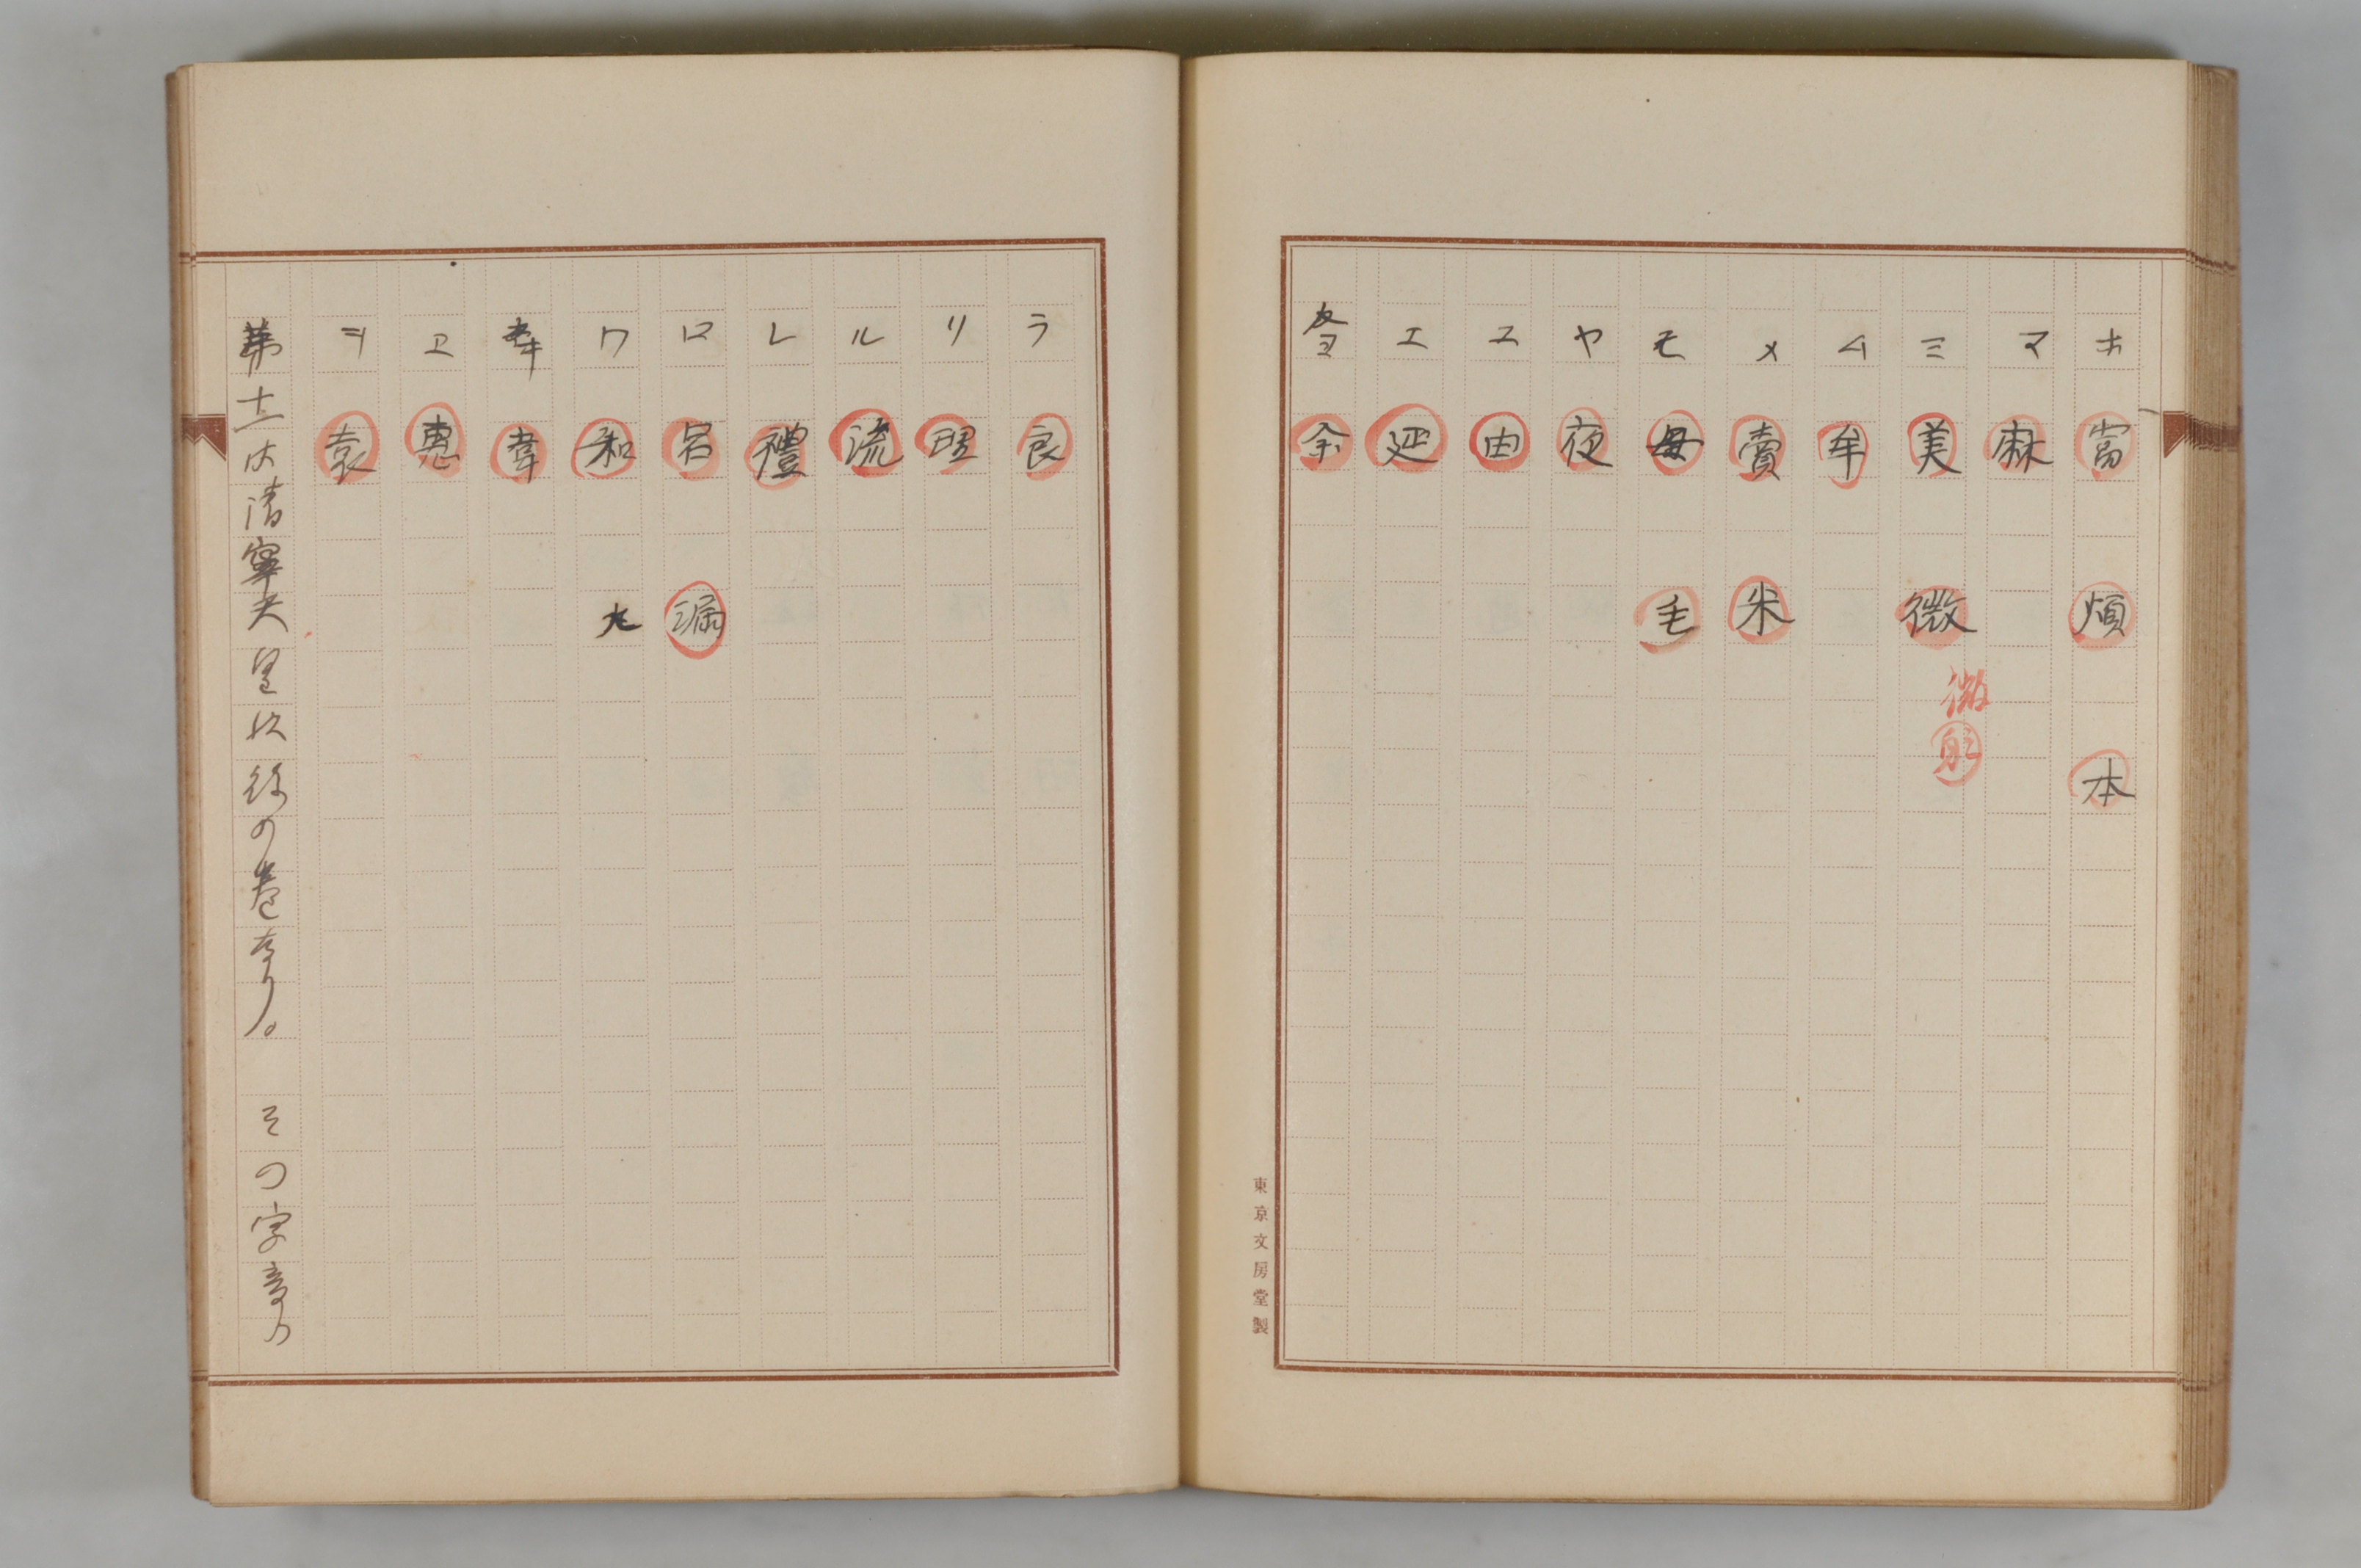 ホ 富 煩 本
マ 麻
ミ 美 微 微
ム 牟
メ 賣 米
モ 母 毛
ヤ 夜
ユ 由
エ 延
ヨ 余
東京文房堂製
ラ 良
リ 理
ル 流
レ 禮
ロ 呂 漏
ワ 和 丸
ヰ 韋
ヱ 惠
ヲ 袁
第十五は清寧天皇以後の巻なり。 その字音の